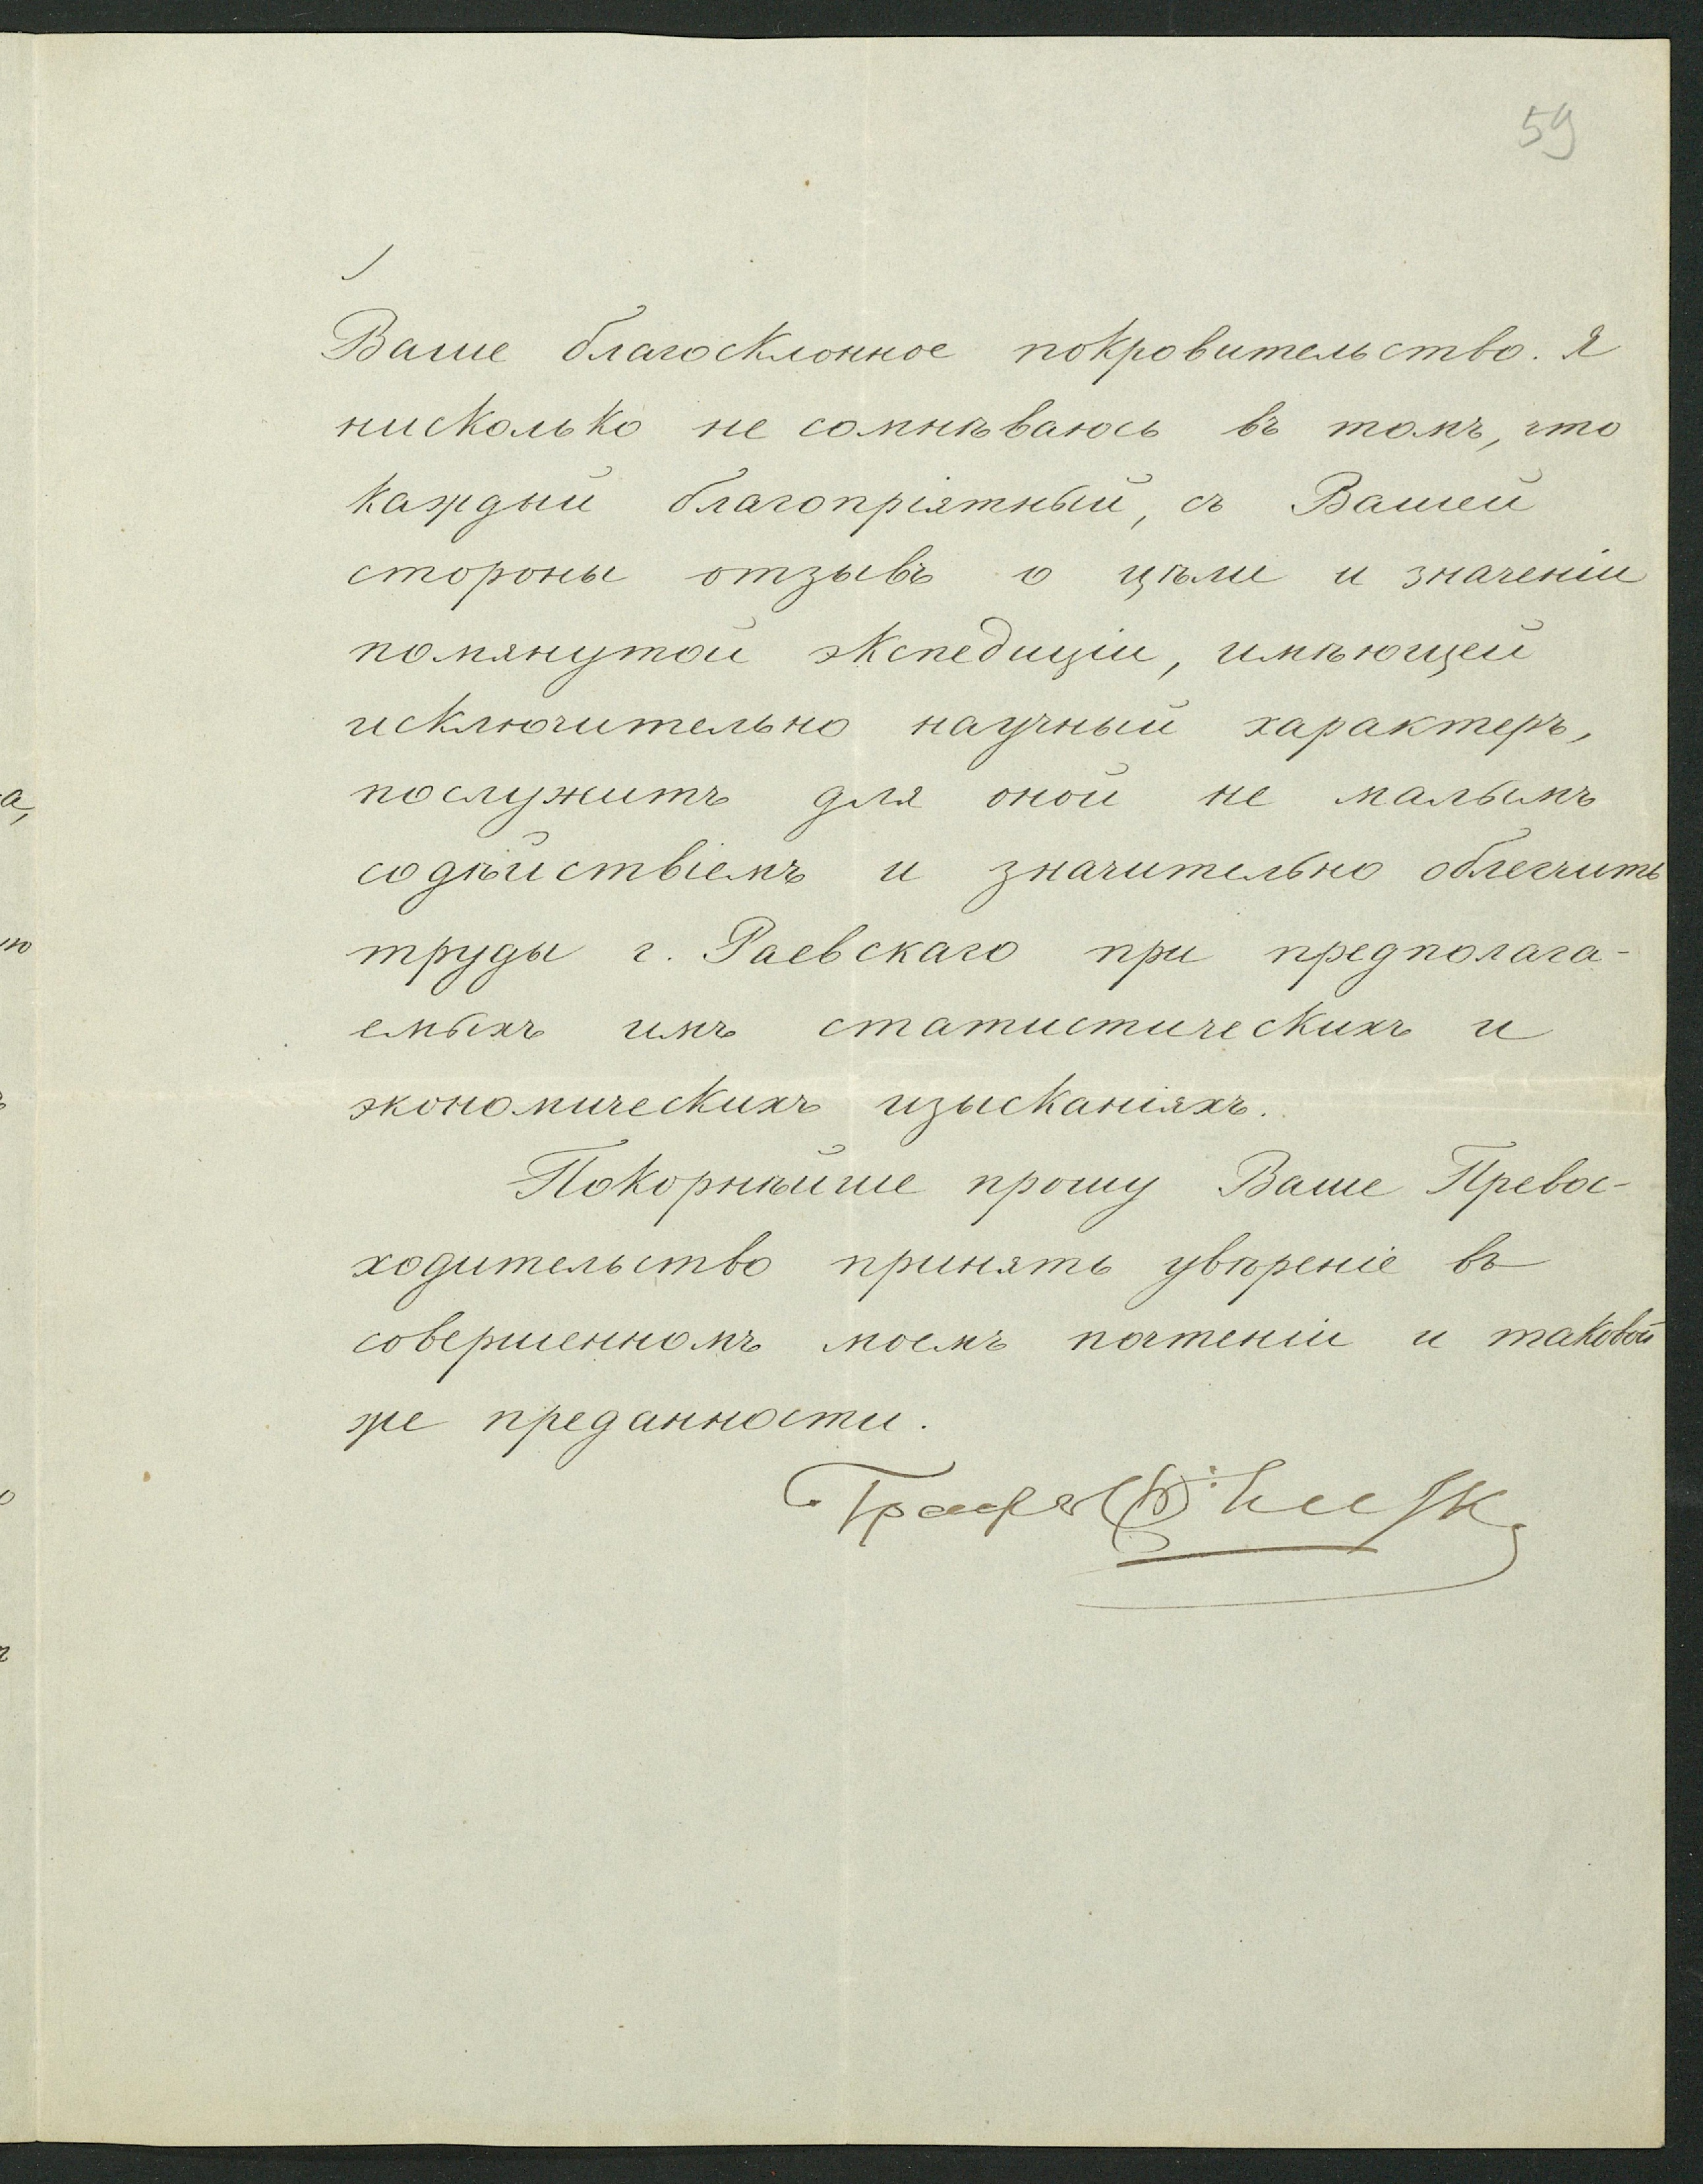 59
Ваше благосклонное покровительство. Я
нисколько не сомнѣваюсь въ томъ, что
каждый благопріятный, съ Вашей
стороны отзывъ о цѣли и значеніи
помянутой экспедиціи, имѣющей
исключительно научный характеръ,
послужитъ для оной не малымъ
содѣйствіемъ и значительно облегчитъ
труды г. Раевскаго при предполага-
емыхъ имъ статистическихъ и
экономическихъ изысканіяхъ.
Покорнѣйше прошу Ваше Превос-
ходительство принять увѣреніе въ
совершенномъ моемъ почтеніи и таковой
же преданности.
Графъ